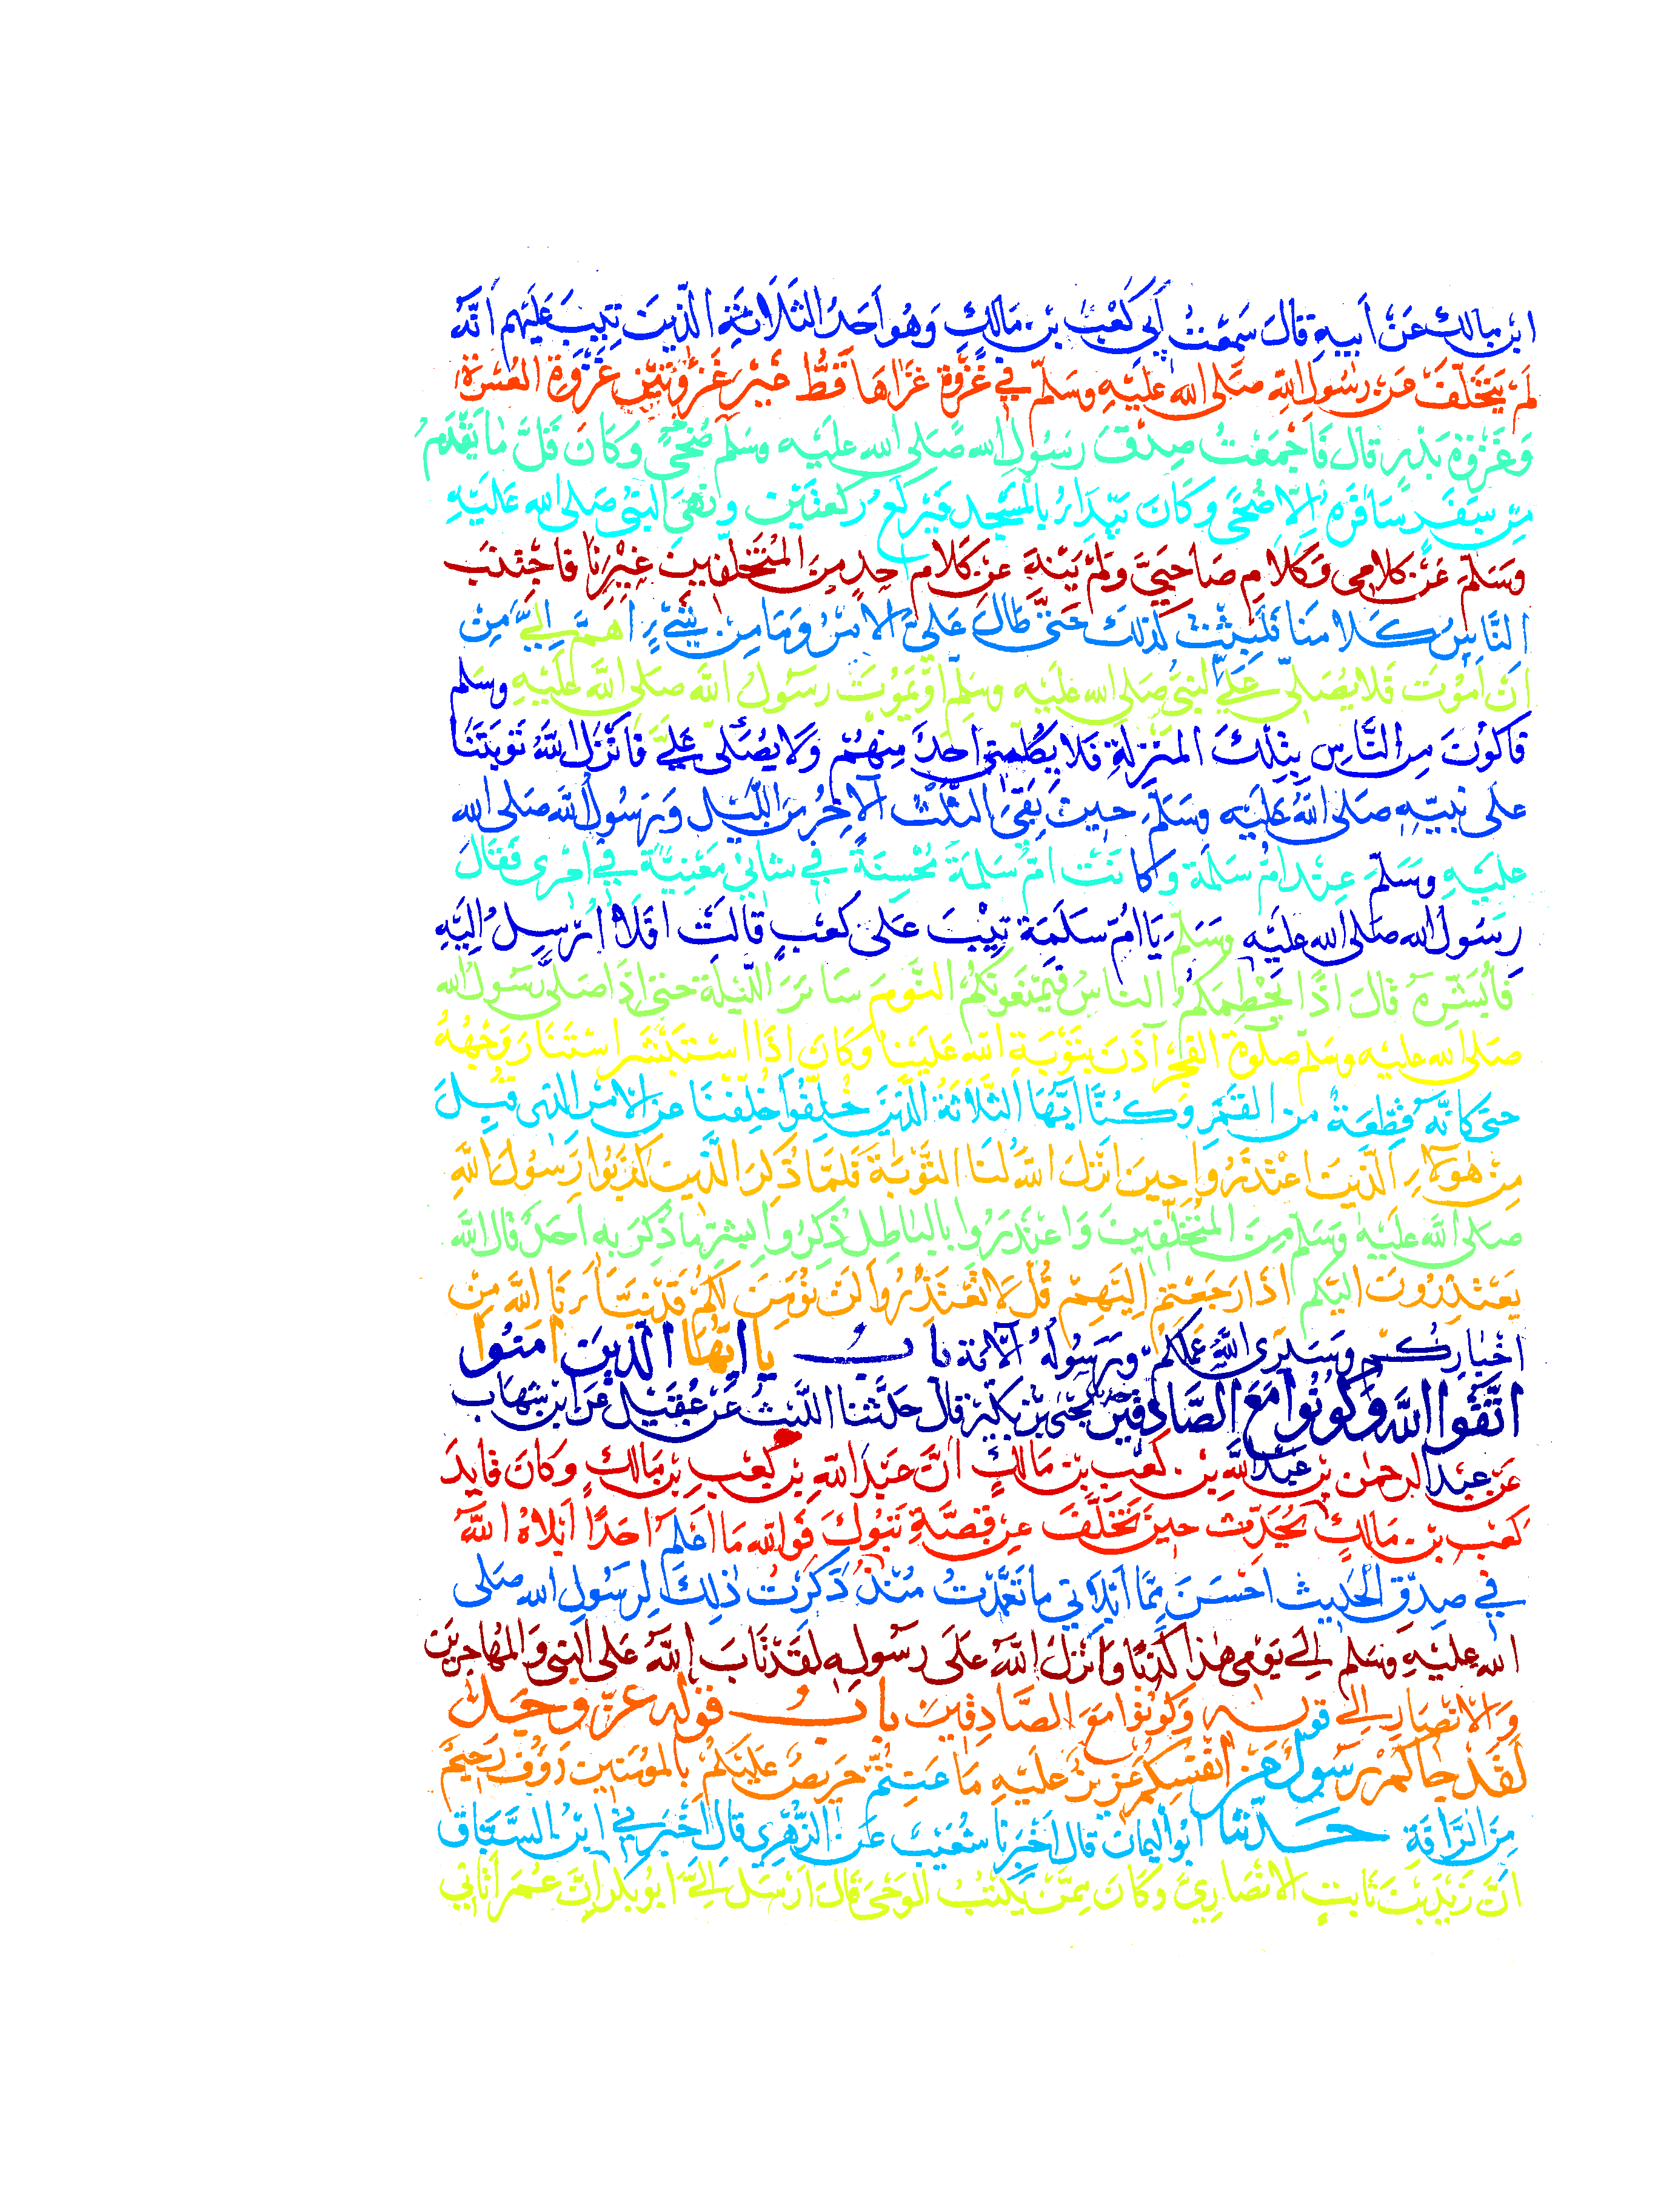 ابْن مالك عَنْ اَبيهِ قالَ سَمِعْتُ اَبِي كَعْبَ بْن مَالكٍ وَهُوَ اَحَدُ الثَلَاثَةِ الّذينَ تِيبَ عَلَيْهِم اَنَّهُ
لَمْ يَتَخَلَّفْ عَنْ رسُول اللهِ صَلى الله عَلَيْهِ وسَلّم في غَزْوَة غَزَاهَا قَطُّ غَيْرَ غَزْوَتَيْن غَزْوَة العُسْرَة
وَغَزْوَة بَدْرٍ قال فَاَجْمَعْتُ صِدْقَ رَسُول الله صَلى الله علَيْه وسَلّم ضُحًى وَكَانَ قَلَّ مَا يَقْدَمُ
مِنْ سَفَرٍ سَافَرَهُ اِلّا ضُحًى وَكَانَ يَبْدَاُ بالمَسْجِد فَيَرْكَعُ رَكعَتَيْن ونَهَى النَبيُّ صَلى الله عَليْهِ
وَسَلّمَ عَنْ كلامِي وَكَلامِ صَاحِبَيَّ وَلَمْ يَنْهَ عَنْ كَلَامِ اَحدٍ مِنَ المُتَخَلّفينَ غَيْرِنَا فاجْتَنَبَ
النَّاسُ كَلامَنَا فَلَبِثْتُ كَذلكَ حَتّى طَالَ عَلَيَّ الاَمْرُ وَمَا مِنْ شَيْءٍ اَهَمَّ اِليَّ مِنْ
اَنْ اَمُوْتَ فَلا يُصَلّى عَلَيَّ النَبيُّ صَلى الله علَيْه وسَلّم اَوْ يَمُوْتَ رَسُولُ الله صَلى الله عَلَيْهِ وسَلم
فَاَكوْنَ مِنَ النَّاسِ بِتِلْكَ المَنْزِلَةِ فَلا يُكَلّمُني اَحَدٌ مِنْهُمْ وَلا يُصَلّى عَلَيَّ فَاَنْزَلَ اللهُ تَوْبَتَنَا
عَلى نَبيّهِ صَلى اللهُ عَلَيْه وسَلّمَ حينَ بَقِيَ الثُلُثُ الآخِرُ مِنَ اللّيْل وَرَسُولُ الله صَلى الله
عليْهِ وَسَلّمَ عِنْدَ امّ سَلَمَة وَكانَتْ اُمّ سَلَمَةَ مُحْسِنَةً في شَأني مَعْنِيّةً في اَمْرى فَقَالَ
رَسُولُ الله صَلى الله عليْه وَسَلمَ يَا اُمّ سَلَمَة تِيْبَ عَلى كَعْبٍ قَالَتْ اَفَلا اُرْسِلُ اِلَيْهِ
فَاُبَشّرَهُ قَالَ اذًا يَحْطِمَكُمُ النَاسُ فيَمْنَعُونَكُمُ النَّوْمَ سَائِرَ اللّيْلَة حَتى اذَا صَلى رَسُولُ الله
صَلى الله عليْه وسَلم صَلوةَ الفَجْر آذَنَ بتَوْبَةِ الله عَلَيْنَا وَكَانَ اذَا اسْتَبْشَرَ اسْتَنَارَ وَجْهُهُ
حَتى كَاَنّه قِطْعَةٌ من القَمَرِ وَكُنّا اَيُّهَا الثَّلاثَةُ الَّذينَ خُلِّفُوا خُلِّفْنَا عَنِ الاَمْرِ الذي قُبِلَ
مِنْ هَؤلاءِ الّذينَ اعْتَذَرُوا حِينَ اَنْزَلَ اللهُ لَنَا التَّوْبَةَ فَلَمَّا ذُكِرَ الَّذينَ كَذَبُوا رَسُولَ اللهِ
صَلى الله عَلَيْهِ وَسَلّم مِنَ المُتَخَلّفينَ وَاعْتَذَرُوا بالبَاطِل ذُكِرُوا بِشَرّ مَا ذُكِرَ بِه اَحَدٌ قَال الله
يَعْتَذِرُونَ اليْكُم اذَا رَجَعْتمْ اِلَيْهِمْ قُلْ لا تَعْتَذِرُوا لَنْ نُؤْمِنَ لَكُمْ قَدْ نَبَّأَنَا اللهُ مِنْ
اَخْبَارِكُم وَسَيَرَى اللهُ عَمَلَكُم وَرَسُولُهُ الآيَة بابُ يا ايّهَا الّذينَ آمَنُوا
اتَّقُوا اللهَ وَكُونُوا مَعَ الصَّادِقينَ يَحْيَى بْن بُكَيْرٍ قال حَدَّثنا اللّيْثُ عَنْ عُقَيْلٍ عَن ابْن شِهَابٍ
عَنْ عبْد الرحمن بْن عَبْد اللهِ بْن كَعْبِ بْن مَالكٍ اَنَّ عَبْدَ اللهِ بْن كَعْبِ بْن مَالكٍ وَكَانَ قَايِدَ
كَعْبِ بْن مَالكٍ يُحَدّث حينَ تَخَلَّفَ عَنْ قِصَّةِ تَبُوكَ فَوَاللهِ مَا اَعْلَمُ اَحَدًا اَبْلاهُ اللهُ
في صِدْقِ الحَديث اَحْسَنَ مِمَّا اَبْلاني مَا تَعَمَّدْتُ مُنْذُ ذَكَرْتُ ذلِكَ لِرَسُولِ الله صَلى
الله عليْهِ وَسَلم اِلى يَوْمي هَذا كَذِبًا وَاَنْزَلَ اللهُ عَلَى رَسُولِه لَقَدْ تَابَ اللهُ عَلى النَبي وَالمُهَاجِرينَ
وَالانْصَار اِلى قوله وَكُونُوا مَعَ الصَّادِقينَ بابُ قوْله عزّ وجَلّ
لَقَدْ جَاكُمْ رَسُولٌ مِنْ اَنْفُسِكُمْ عَزيزٌ عَلَيْهِ مَا عَنِتُّمْ حَريصٌ عَلَيْكُمْ بالمُؤمنين رَؤُفٌ رَحِيمٌ
مِنَ الرَّافَة حَدّثنا ابُو اليَمان قَالَ اَخْبَرَنَا شُعَيْبٌ عَن الزُّهْرِي قَالَ اَخْبَرَني ابْنُ السَّبَّاق
اَنَّ زَيْدَ بْنَ ثَابتٍ الاَنْصَارِيَّ وَكَانَ مِمَّنْ يَكْتُبُ الوَحْيَ قَالَ اَرْسَلَ اِلَيَّ اَبُو بَكر اِنَّ عُمَرَ اَتَاني